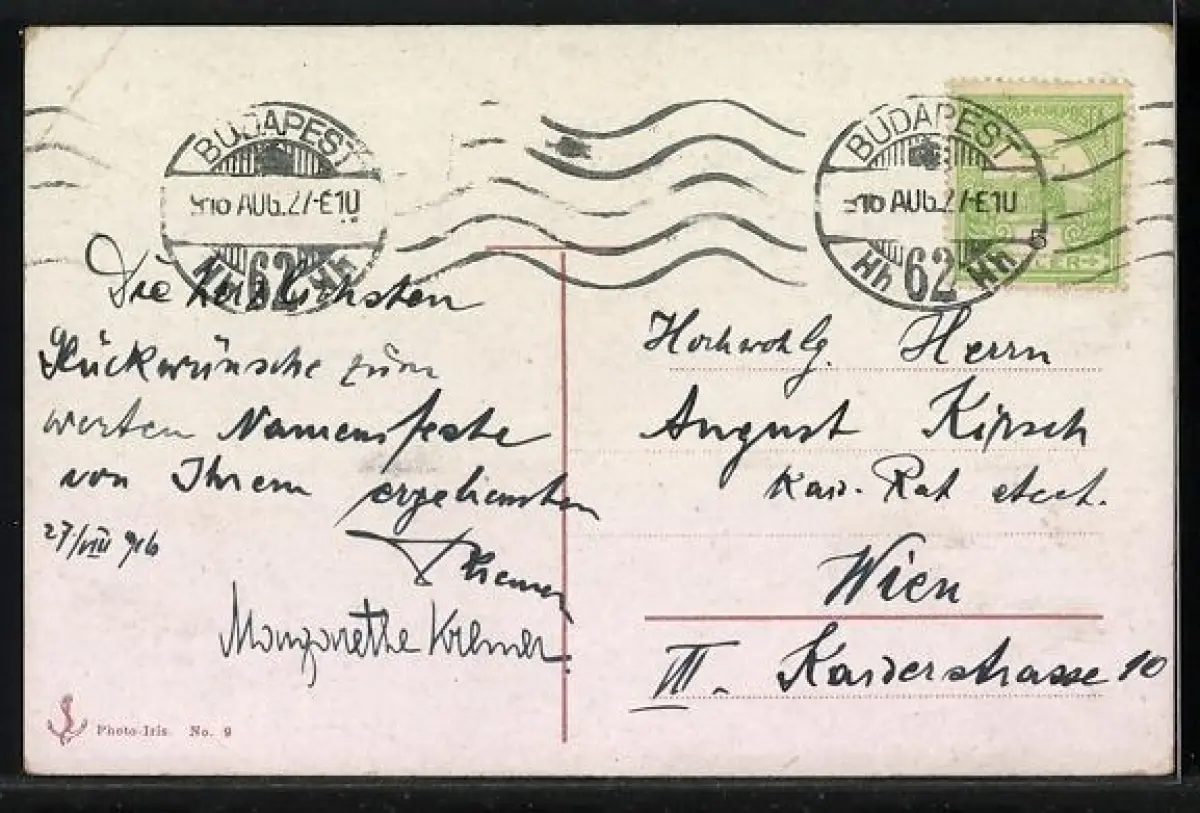 BUDAPEST
916 AUG.27-E10
Hh 62 Hh
BUDAPEST
916 AUG.27-E10
Hh 62 Hh
MAGYAR KIR. POSTA
5
Die herzlichsten
Glückwünsche zum
werten Namensfeste
von Ihrem ergebensten
Kremer
27/VIII 916
Margarethe Kremer.
Hochwohlg. Herrn
August Kirsch
Kais. Rat etc etc.
Wien
III. Kaiserstrasse 10
Photo-Iris. No. 9